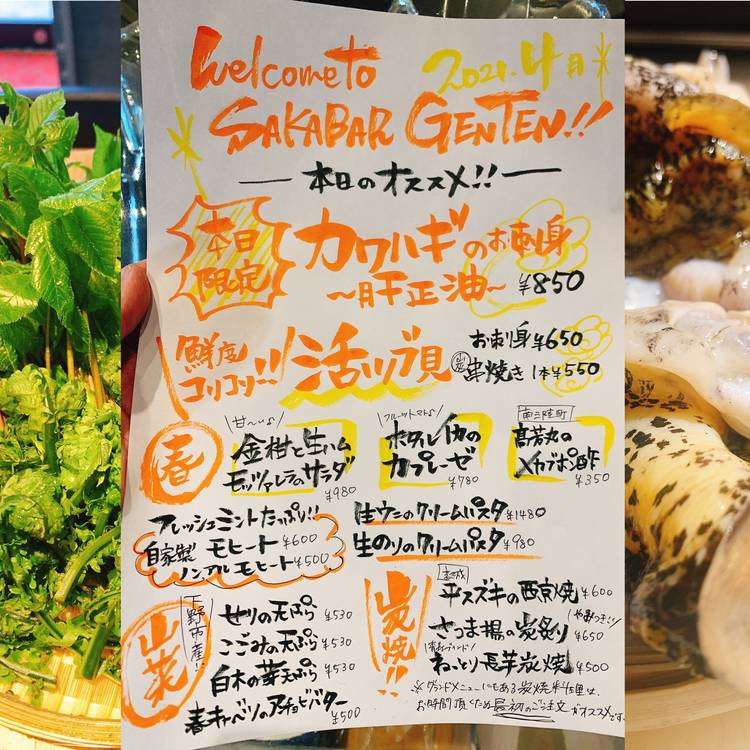 Welcome to
2021.4月
SAKABAR GENTEN!!
本日のオススメ!!
本日
限定
カワハギのお刺身
~肝正油~
¥850
鮮度
コリコリ!!
活ツブ貝
お刺身¥650
串焼き1本¥550
春
甘~い♪
金柑と生ハム
モッツァレラのサラダ
¥980
フルーツトマト♪
ホタルイカの
カプレーゼ
¥780
南三陸町
髙芳丸の
メカブポン酢
¥350
フレッシュミントたっぷり!!
自家製
モヒート¥600
ノンアルモヒート¥500
生ウニのクリームパスタ¥1480
生のりのクリームパスタ¥980
山菜
下野市産!!
せりの天ぷら¥530
こごみの天ぷら¥530
白木の芽天ぷら¥530
春キャベツのアンチョビバター
¥500
炭焼!!
平スズキの西京焼¥600
やみつき!!
さつま揚の炭炙り
¥650
ねっとり長芋炭焼¥500
※グランドメニューにもある炭焼料理は、
お時間頂くため最初のご注文がオススメです